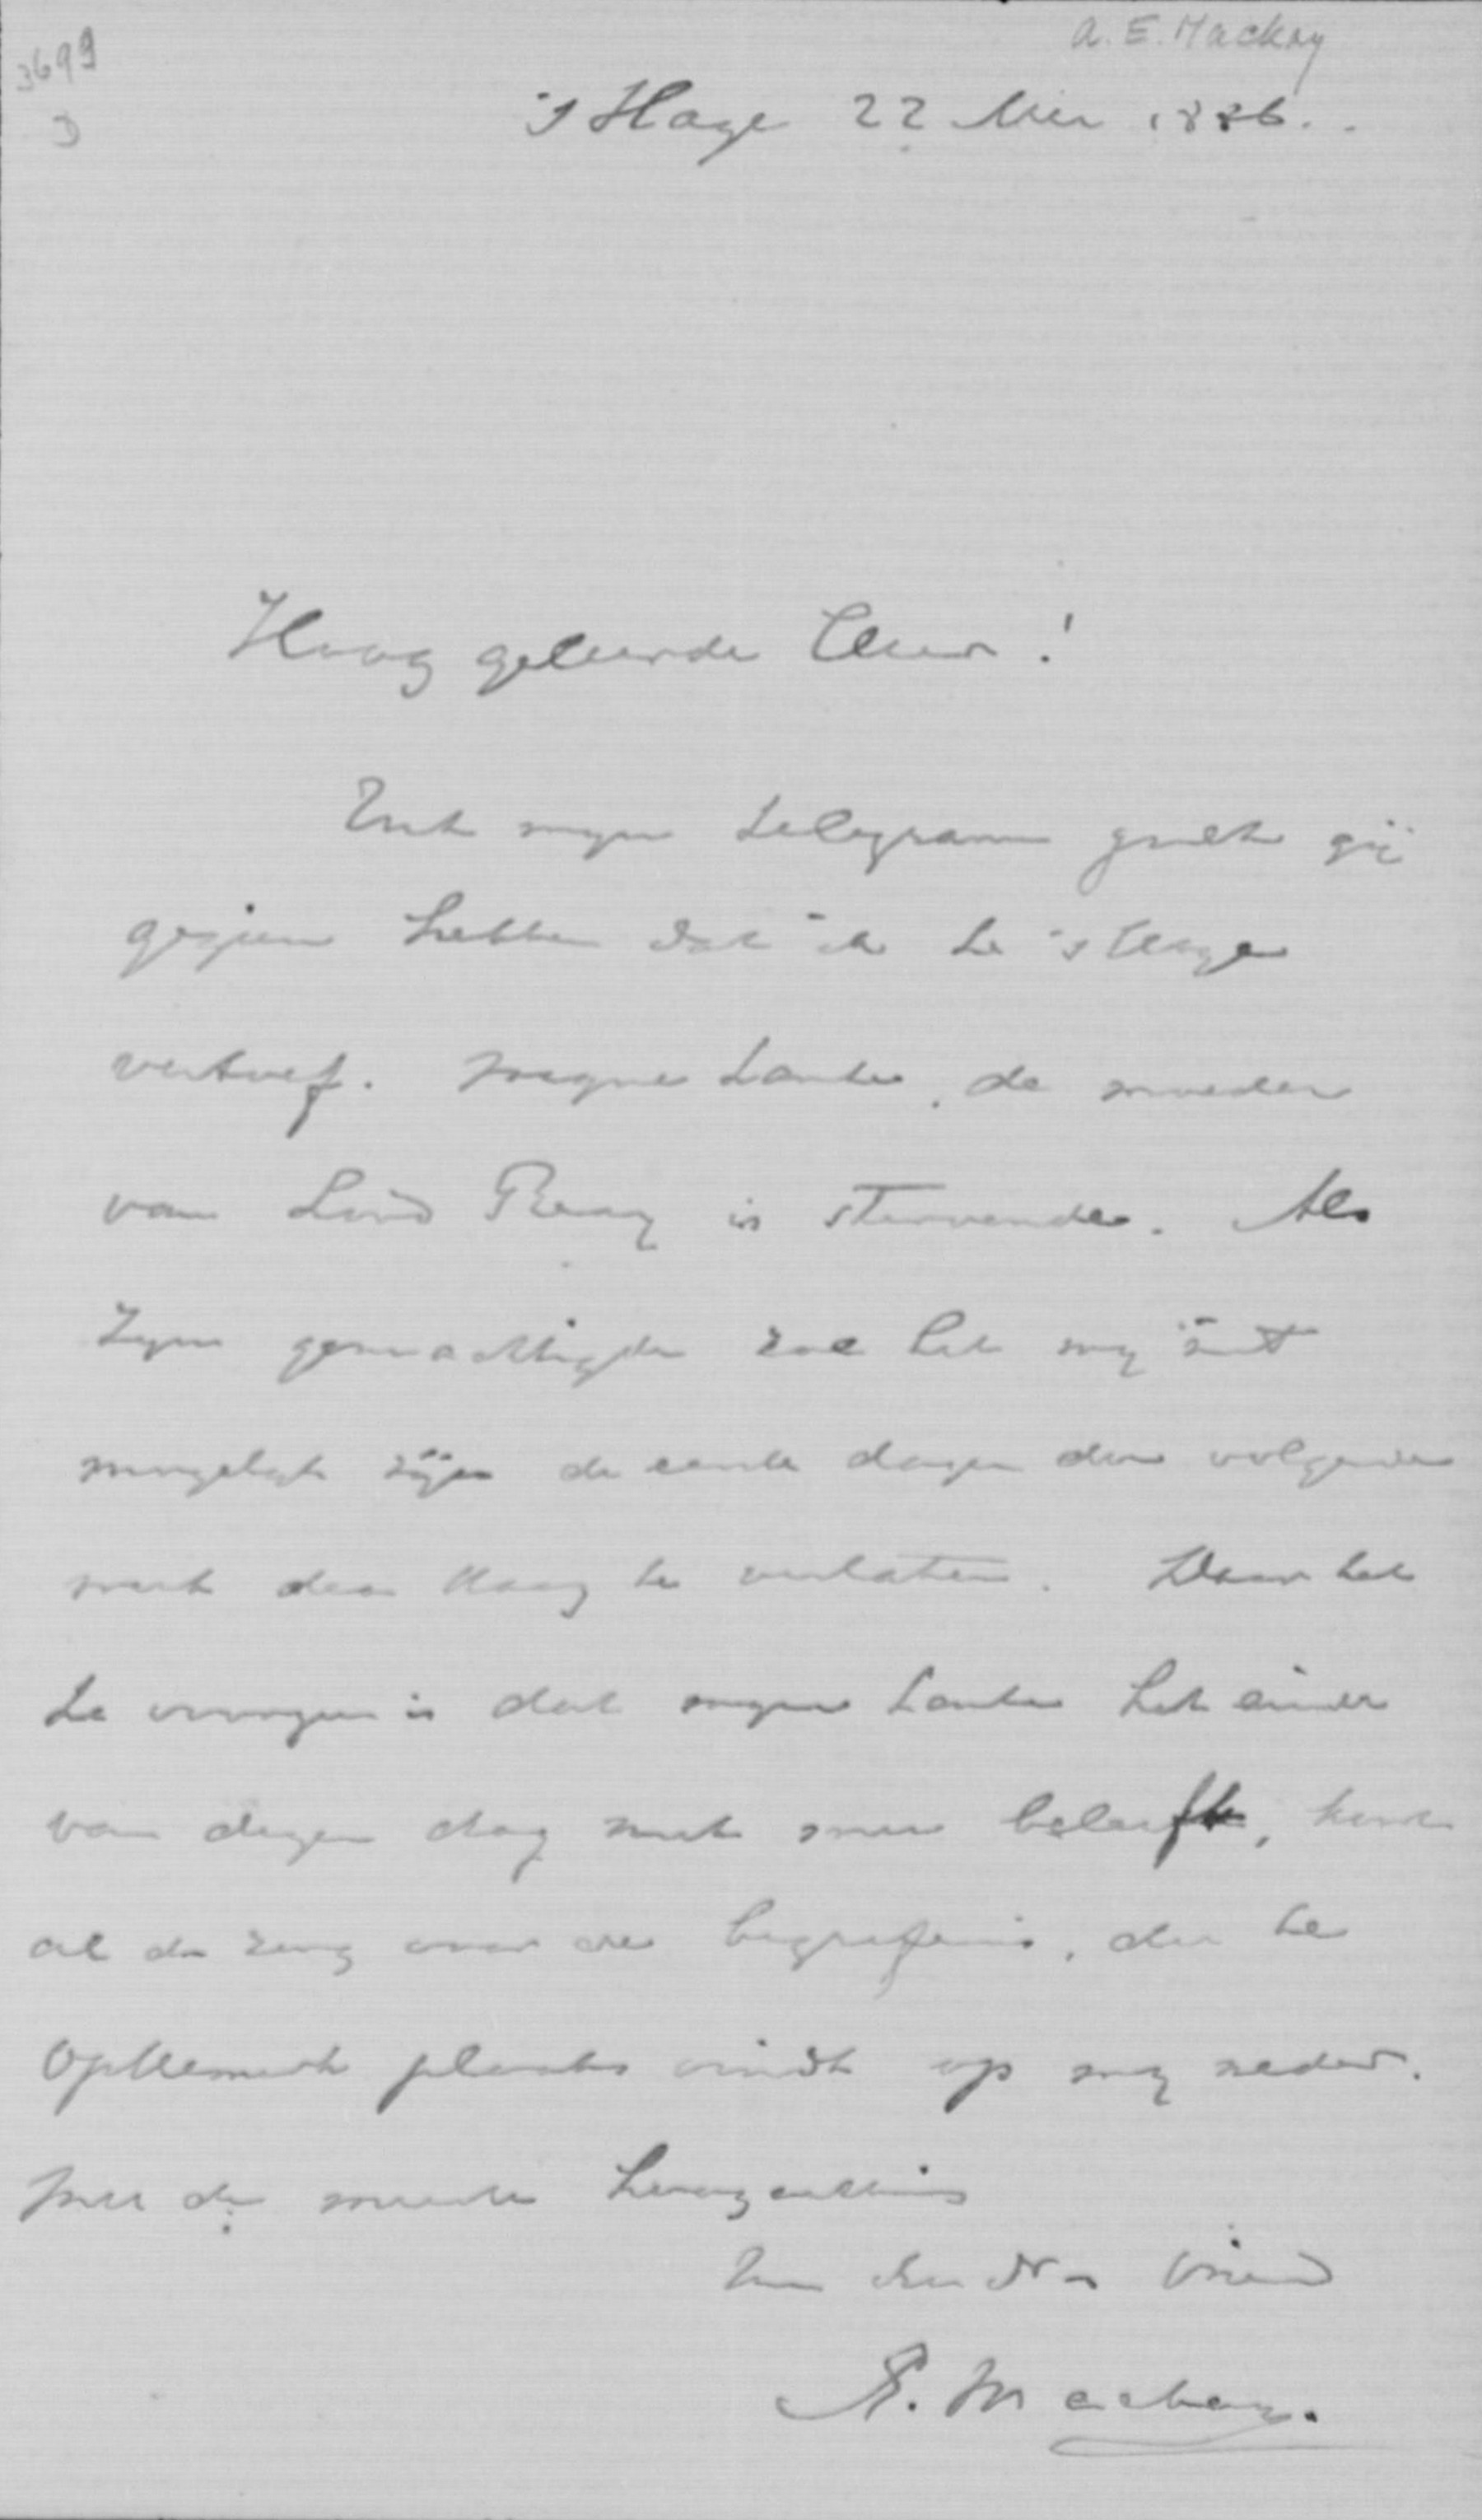 3699
D
A. E. Mackay
's Hage 22 Mei 1886.
Hooggeleerde Heer!
Uit mijn telegram zult gij
gezien hebben dat ik te 's Hage
vertoef. Mijne tante, de moeder
van Lord Reay is stervende. Als
zijn gemachtigde zal het mij niet
mogelijk zijn de eerste dagen der volgende
week den Haag te verlaten. Daar het
te voorzien is dat mijne tante het einde
van dezen dag niet meer beleeft, komt
al de zorg voor de begrafenis, die te
Ophemert plaats vindt op mij neder.
Met de meeste hoogachting
Uw dw vriend
Æ. Mackay.